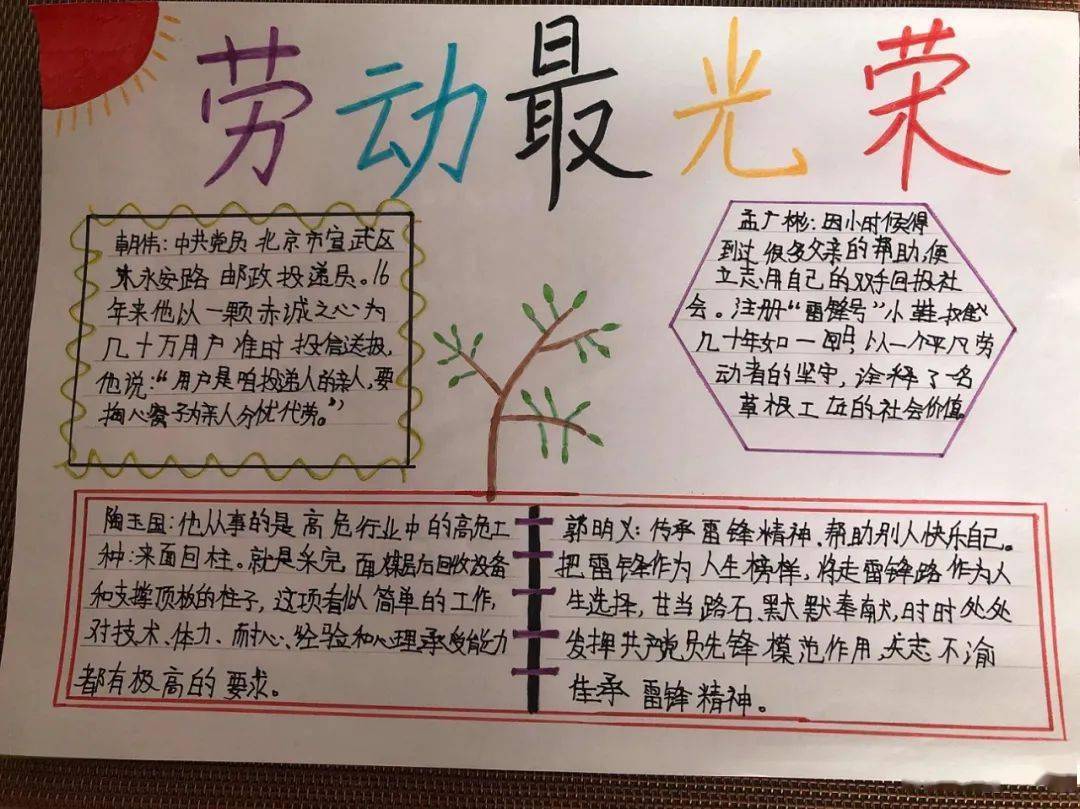 劳动最光荣
朝伟:中共党员 北京市宣武区
东永安路 邮政投递员。16
年来他以一颗赤诚之心为
几十万用户准时投信送报,
他说:“用户是咱投递人的亲人,要
掏心窝子为亲人分忧代劳。”
孟广彬:因小时候得
到过很多父亲的帮助,便
立志用自己的双手回报社
会。注册“雷锋号”小鞋
几十年如一 以一个平凡劳
动者的坚守,诠释了一名
草根工 的社会价值
陶玉国:他从事的是高危行业中的高危工
种:采面回柱。就是采完 面煤层后回收设备
和支撑顶板的柱子,这项看似简单的工作,
对技术、体力、耐心、经验和心理承受能力
都有极高的要求。
郭明义:传承雷锋精神、帮助别人快乐自己。
把雷锋作为人生榜样,将走雷锋路作为人
生选择,甘当路石、默默奉献,时时处处
发挥共产党员先锋模范作用,矢志不渝
承雷锋精神。